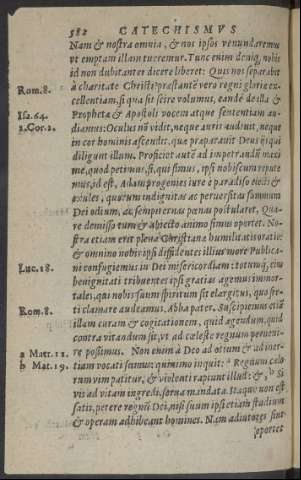 582 CATECHISMVS
Nam & nostra omnia, & nos ipsos venundaremus
vt emptam illam tueremur. Tunc enim deniq, nobis
id non dubitanter dicere liberet: Quis nos separabit
à charitate Christi? præstantē vero regni gloriæ ex-
Rom.8.
cellentiam, si qua sit scire volumus, eandē de illa &
Isa.64.
Prophetæ & Apostoli vocem atque sententiam au-
1.Cor.2.
diamus: Oculus nō vidit, neque auris audiuit, neque
in cor hominis ascendit, quæ præparauit Deus ijs qui
diligunt illum. Proficiet autē ad impetrandū
me, quod petimus, si, qui simus, ipsi nobiscum reputē
mus, id est, Adam progenies iure è paradiso eiecti &
exules, quorum indignitas ac peruersitas summum
Dei odium, ac sempiternas pœnas postularet, Qua-
re demisso tum & abiecto animo simus oportet. No-
stra etiam erit plena Christianæ humilitatis oratio:
& omnino nobis ipsi diffidentes illius more Publica-
Luc.18.
ni confugiemus in Dei misericordiam: totumq, eius
benignitati tribuentes ipsi gratias agemus immor-
tales, qui nobis suum spiritum sit elargitus, quo fre-
ti clamare audeamus, Abba pater. Suscipiemus etiā
Rom.8.
illam curam & cogitationem, quid agendum, quid
contra vitandum sit, vt ad cæleste regnum perueni-
a Matt.11.
re possimus. Non enim à Deo ad otium & ad iner-
b Mat.19.
tiam vocati sumus: quinimo inquit: a Regnum cælo
rum vim patitur, & violenti rapiunt illud: &, b Si
vis ad vitam ingredi, serua mandata. Itaque non est
satis, petere regnū Dei, nisi suum ipsi etiam studium
& operam adhibeant homines. Nam adiutores sint
oportet